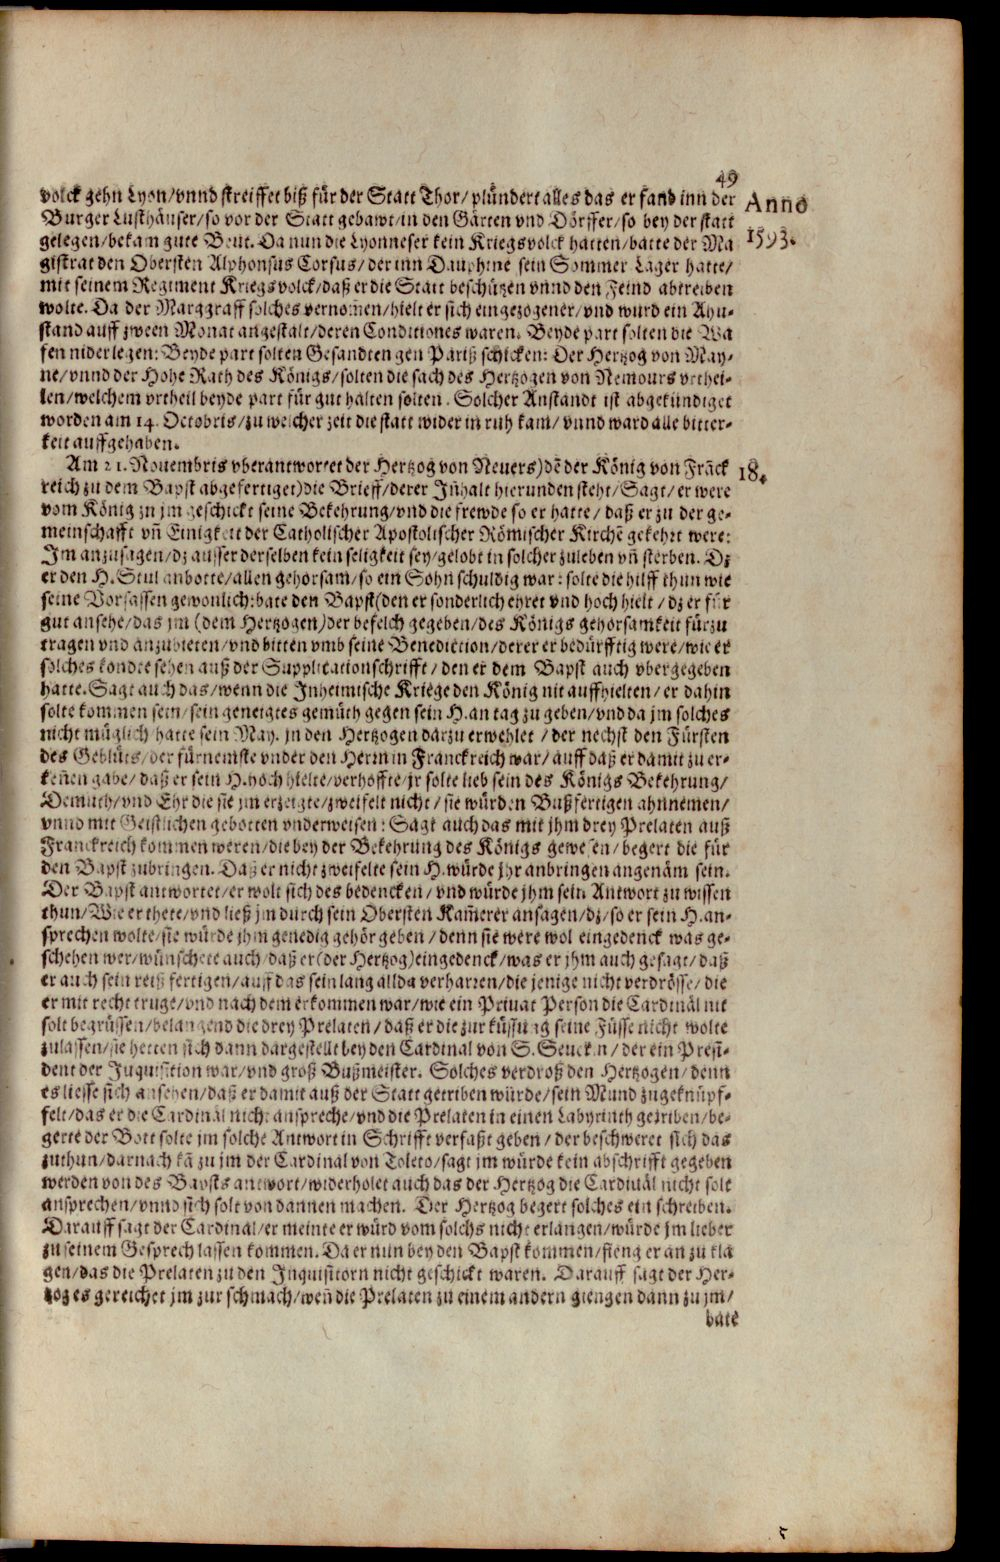 49
volck gehn Lyon/vnnd streiffet biß für der Statt Thor/plündert alles das er fand inn der
Anno
Burger Lusthäuser/so vor der Statt gebawt/in den Gärten vnd Dörffer/so bey der statt
1593.
gelegen/bekam gute Beut. Da nun die Lyonneser kein Kriegsvolck hatten/batte der Ma
gistrat den Obersten Alphonsus Corsus/der inn Dauphine sein Sommer Läger hatte/
mit seinem Regiment Kriegsvolck/daß er die Statt beschützen vnnd den Feind abtreiben
wolte. Da der Marggraff solches vernom̃en/hielt er sich eingezogener/vnd wurd ein Ahn-
stand auff zween Monat angestalt/deren Conditiones waren. Beyde part solten die Wa
fen niderlegen: Beyde part solten Gesandten gen Pariß schicken: Der Hertzog von May-
ne/vnnd der Hohe Rath des Königs/solten die sach des Hertzogen von Nemours vrthei-
len/welchem vrtheil beyde part für gut halten solten. Solcher Anstandt ist abgekündiget
worden am 14. Octobris/zu welcher zeit die statt wider in ruh kam/vnnd ward alle bitter-
keit auffgehaben.
Am 21. Nouembris vberantwortet der Hertzog von Neuers)dẽ der König von Frãck
18.
reich zu dem Bapst abgefertiget)die Brieff/derer Jnhalt hierunden steht/Sagt/er were
vom König zu jm geschickt seine Bekehrung/vnd die frewde so er hatte/daß er zu der ge-
meinschafft vñ Einigkeit der Catholischer Apostolischer Römischer Kirchẽ gekehrt were:
Jm anzusagen/dz ausser derselben kein seligkeit sey/gelobt in solcher zuleben vñ sterben. Dz
er den H. Stul anbotte/allen gehorsam/so ein Sohn schuldig war: solte die hilff thun wie
seine Vorfassen gewonlich:bate den Bapst(den er sonderlich ehret vnd hoch hielt/dz er für
gut ansehe/das jm (dem Hertzogen)der befelch gegeben/des Königs gehorsamkeit fürzu
tragen vnd anzubieten/vnd bitten vmb seine Benediction/derer er bedürfftig were/wie er
solches kondte sehen auß der Supplicationschrifft/den er dem Bapst auch vbergegeben
hatte. Sagt auch das/wenn die Jnheimische Kriege den König nit auffhielten/er dahin
solte kommen sein/sein geneigtes gemüth gegen sein H. an tag zu geben/vnd da jm solches
nicht müglich hatte sein May. jn den Hertzogen darzu erwehlet/der nechst den Fürsten
des Geblüts/der fürnemste vnder den Herrn in Franckreich war/auff daß er damit zu er-
keñen gabe/daß er sein H. hoch hielte/verhoffte/jr solte lieb sein des Königs Bekehrung/
Demuth/vnd Ehr die sie jm erzeigte/zweifelt nicht/sie würden Bußfertigen ahnnemen/
vnnd mit Geistlichen gebotten vnderweisen: Sagt auch das mit jhm drey Prelaten auß
Franckreich kommen weren/die bey der Bekehrung des Königs gewesen/begert die für
den Bapst zubringen. Daß er nicht zweifelte sein H. würde jhr anbringen angenäm sein.
Der Bapst antwortet/er wolt sich des bedencken/vnd würde jhm sein Antwort zu wissen
thun/Wie er thete/vnd ließ jm durch sein Obersten Kam̃erer ansagen/dz/so er sein H. an-
sprechen wolte/sie würde jhm genedig gehör geben/denn sie were wol eingedenck was ge-
schehen wer/wünschete auch/daß er(der Hertzog)eingedenck/was er jhm auch gesagt/daß
er auch sein reiß fertigen/auff das sein lang allda verharren/die jenige nicht verdrösse/die
er mit recht truge/vnd nach dem er kommen war/wie ein Priuat Person die Cardinäl nit
solt begrüssen/belangend die drey Prelaten/daß er die zur küssung seine Füsse nicht wolte
zulassen/sie hetten sich dann dargestellt bey den Cardinal von S. Seuerin/der ein Presi-
dent der Jnquisition war/vnd groß Bußmeister. Solches verdroß den Hertzogen/denn
es liesse sich ansehen/daß er damit auß der Statt getriben würde/sein Mund zugeknüpf-
felt/das er die Cardinäl nicht anspreche/vnd die Prelaten in einen Labyrinth getriben/be-
gerte der Bott solte jm solche Antwort in Schrifft verfaßt geben/der beschweret sich das
zuthun/darnach kã zu jm der Cardinal von Toleto/sagt jm würde kein abschrifft gegeben
werden von des Bapsts antwort/widerholet auch das der Hertzog die Cardinäl nicht solt
ansprechen/vnnd sich solt von dannen machen. Der Hertzog begert solches ein schreiben.
Darauff sagt der Cardinal/er meinte er würd vom solchs nicht erlangen/würde jm lieber
zu seinem Gesprech lassen kommen. Da er nun bey den Bapst kommen/fieng er an zu kla
gen/das die Prelaten zu den Jnquisitorn nicht geschickt waren. Darauff sagt der Her-
tzog es gereichet jm zur schmach/weñ die Prelaten zu einem andern giengen dann zu jm/
bate